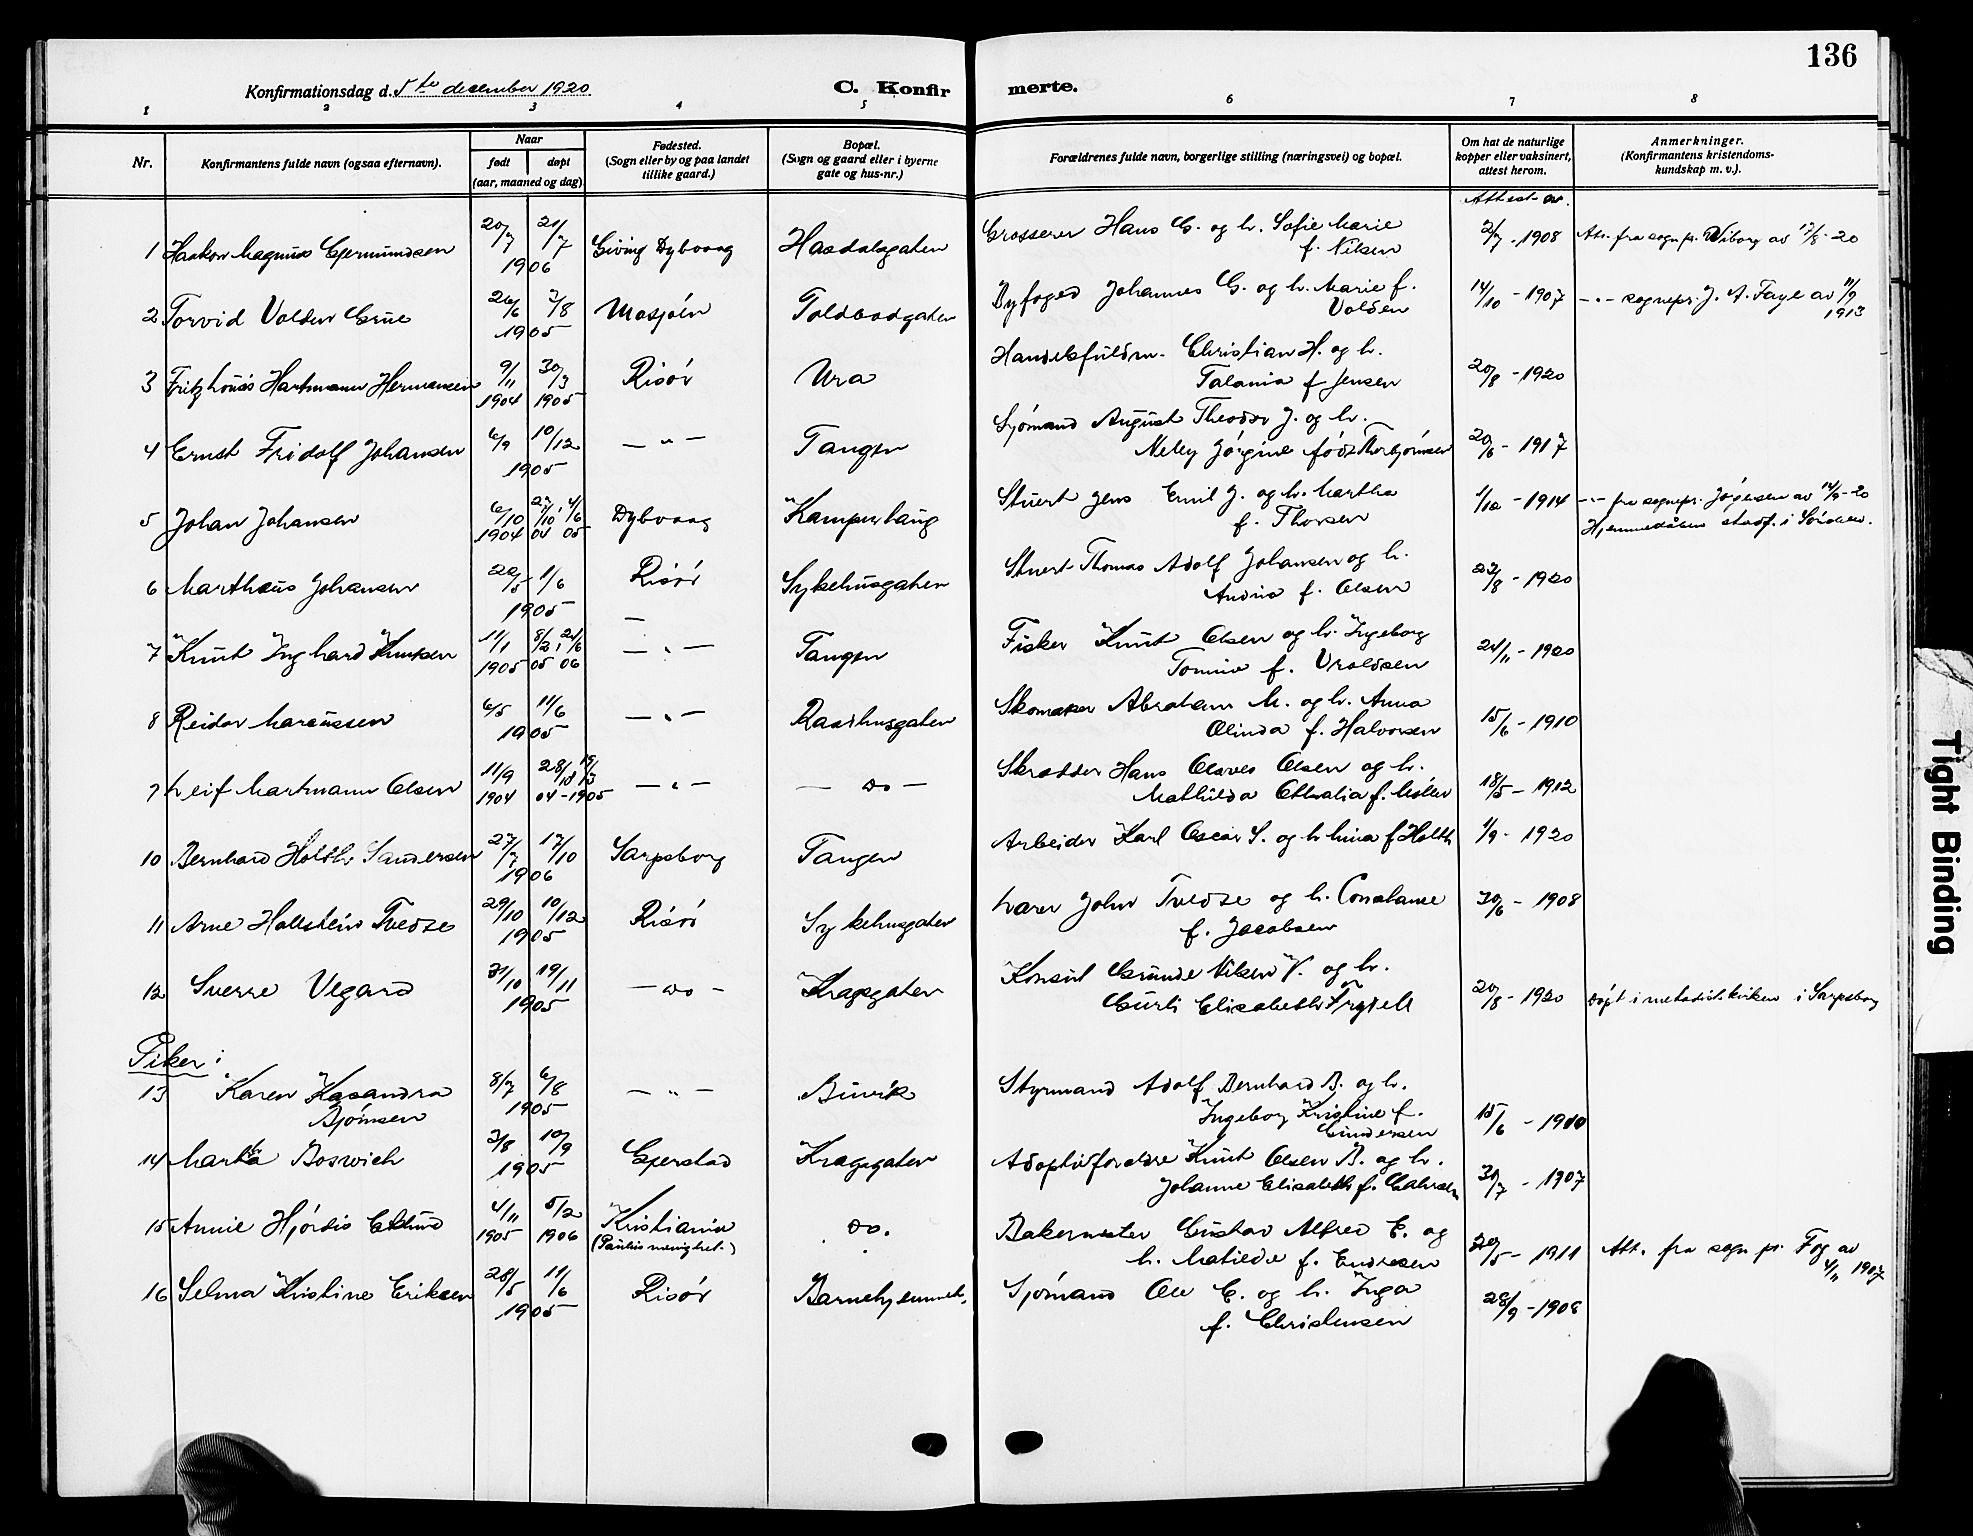 136
Konfirmationsdag d. 5te december 1920
C. Konfirmerte.
1 2 3 4 5 6 7 8
Nr.
Konfirmantens fulde navn (ogsaa efternavn).
Naar
født døpt
(aar, maaned og dag)
Fødested.
(Sogn eller by og paa landet
tillike gaard.)
Bopæl.
(Sogn og gaard eller i byerne
gate og hus-nr.)
Forældrenes fulde navn, borgerlige stilling (næringsvei) og bopæl.
Om hat de naturlige
kopper eller vaksinert,
attest herom.
Anmerkninger.
(Konfirmantens kristendoms-
kundskap m. v.).
Attest av.
1 Haakon Magnus Gjermundsen 20/7 21/7 1906 Giving Dybvaag Hasdalsgaten Grosserer Hans G. og h. Sofie Marie
f. Nilsen 2/7 - 1908 Att. fra sogn.pr. Wiborg av 17/8-20
2 Torvid Volden Grue 26/6 7/8 1905 Mosjøen Toldbodgaten Byfoged Johannes G. og h. Marie f.
Volden 14/10 - 1907 - " - sognepr. J. A. Faye av 11/9
1913
3 Fritz Hartmann Hermansen 9/11 1904 30/3 1905 Risør Ura Handelsfuldm. Christian H. og h.
Talania f. Jensen 20/8 - 1920
4 Ernst Fridolf Johansen 6/9 10/12 1905 - " - Tangen Sjømand August Theodor J. og h.
Jørgine født Thorbjørnsen 20/6 - 1917
5 Johan Johansen 6/10 1904 27/10 04 4/6 05 Dybvaag Kamperhaug Stuert Jens Emil J. og h. Martha
f. Thorsen 1/10 - 1914 - " - fra sognepr. av 14/9-20
6 Marthæus Johansen 20/5 1/6 1905 Risør Sykehusgaten Stuert Thomas Adolf Johansen og h.
Andrea f. Olsen 23/8 - 1920
7 Knut Inghard Knutsen 11/1 1905 8/2 05 24/6 06 - " - Tangen Fisker Knut Olsen og h. Ingeborg
Tomine f. Vroldsen 24/11 - 1920
8 Reidar Marcussen 6/5 11/6 1905 - " - Raadhusgaten Skomaker Abraham M. og h. Anna
Olinda f. Halvorsen 15/6 - 1910
9 Leif Martmann Olsen 11/9 1904 28/10 04 - 19/3 1905 - " - - do - Skrædder Hans Olaves Olsen og h.
Mathilda Othalia f. Møller 18/5 - 1912
10 Bernhard Holth Sandersen 27/7 17/10 1906 Sarpsborg Tangen Arbeider Karl Oscar S. og h. Lina f. Holth 1/9 - 1920
11 Arne Hallstein Tvedte 29/10 10/12 1905 Risør Sykehusgaten Lærer John Tvedte og h. Constanse
f. Jacobsen 30/6 - 1908
12 Sverre Vegard 31/10 19/11 1905 - do - Kragsgaten Konsul Grunde Nilsen V. og h.
Guri Elisabeth 20/8 - 1920 Døpt i metodistkirken i Sarpsborg
Piker:
13 Karen Kasandra
Bjørnsen 8/7 6/8 1905 - " - Buvik Styrmand Adolf Bernhard B. og h.
Ingeborg Kristine f.
Gundersen 15/6 - 1910
14 Martha Boswich 3/8 10/9 1905 Gjerstad Kragsgaten Adoptivforældre Knut Olsen B. og h.
Johanne Elisabeth f. 30/7 - 1907
15 Annie Hjørdis Eklund 4/11 1905 5/2 1906 Kristiania
(Paulus menighet.) do. Bakermester Gustav Alfred E. og
h. Matilde f. Endresen 20/5 - 1911 Att. fra sogn.pr. Fog av
4/11 1907
16 Selma Kristine Eriksen 28/5 11/6 1905 Risør Barnehjemmet. Sjømand Ole E. og h. Inga
f. Christensen 28/9 - 1908
Tight Binding